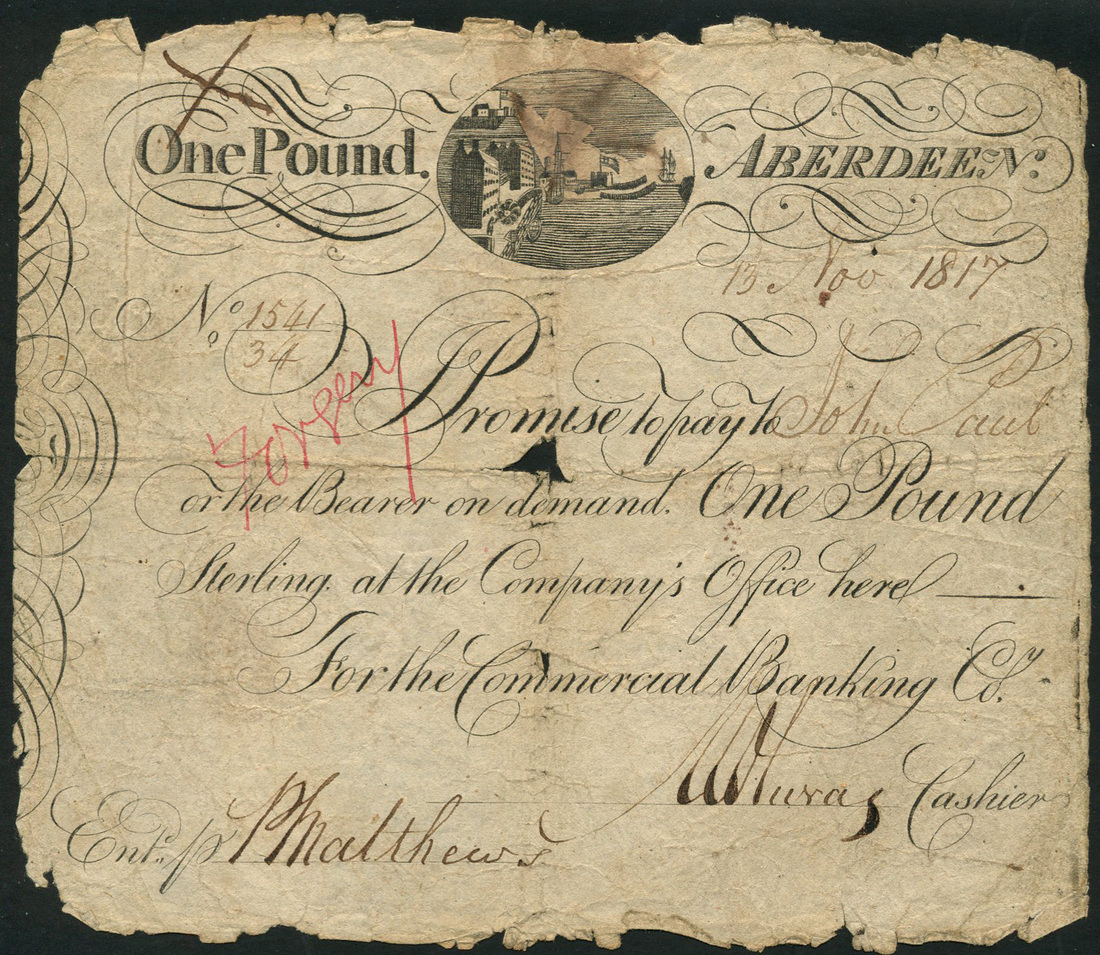 One Pound. ABERDEEN.
13 Nov 1817
No. 1541
34
Forgery
I Promise to pay to John
or the Bearer on demand. One Pound
Sterling. at the Company's Office here
For the Commercial Banking Coy.
Murray Cashier
Entd. p Matthews